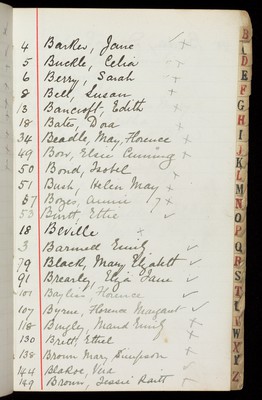 4 Barker, Jane
5 Buckle, Celia
6 Berry, Sarah
8 Bell, Susan
13 Bancroft, Edith
18 Bates, Dora
34 Beadle, May, Florence
49 Box, Elsie
50 Bond, Isobel
51 Bush, Helen May
57 Boyes, Annie
53 Ettie
18 Beville
3 Emily
79 Black, Mary Elizabeth
91 Brearley, Eliza Jane
101 Florence
107 Byrne, Florence Margaret
118 Bingley, Maud Emily
130 Britt, Ethel
138 Brown Mary Simpson
144 Vera
149 Brown, Jessie Raitt
B
A
D
E
F
G
H
I
J
K
L
M
N
O
P
Q
R
S
T
W
X
Y
Z